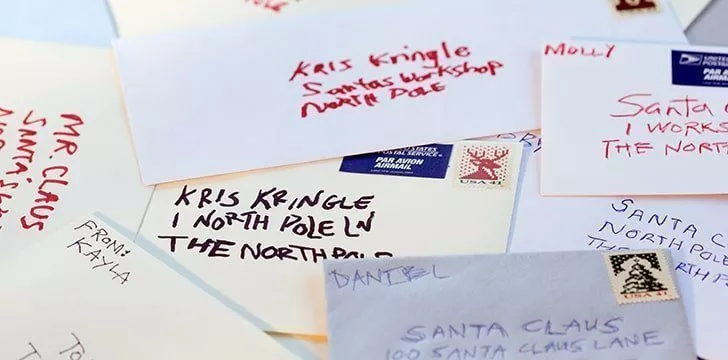 KRIS Kringle
Santas Workshop
NORTH POLE
MOLLY
UNITED
POSTAL
PAR A
AIRM
Santa
1 WORKS
THE NORT
MR. CLAUS
SANTA'S
STATES
POSTAL SERVICE
PAR AVION
AIRMAIL
USA 41
KRIS KRINGLE
1 NORTH POLE LN
THE NORTH POLE
SANTA C
NORTH POLE
TH
RTH P
FROM:
KAYLA
TO
DANIEL
USA 41
SANTA CLAUS
100 SANTA CLAUS LANE